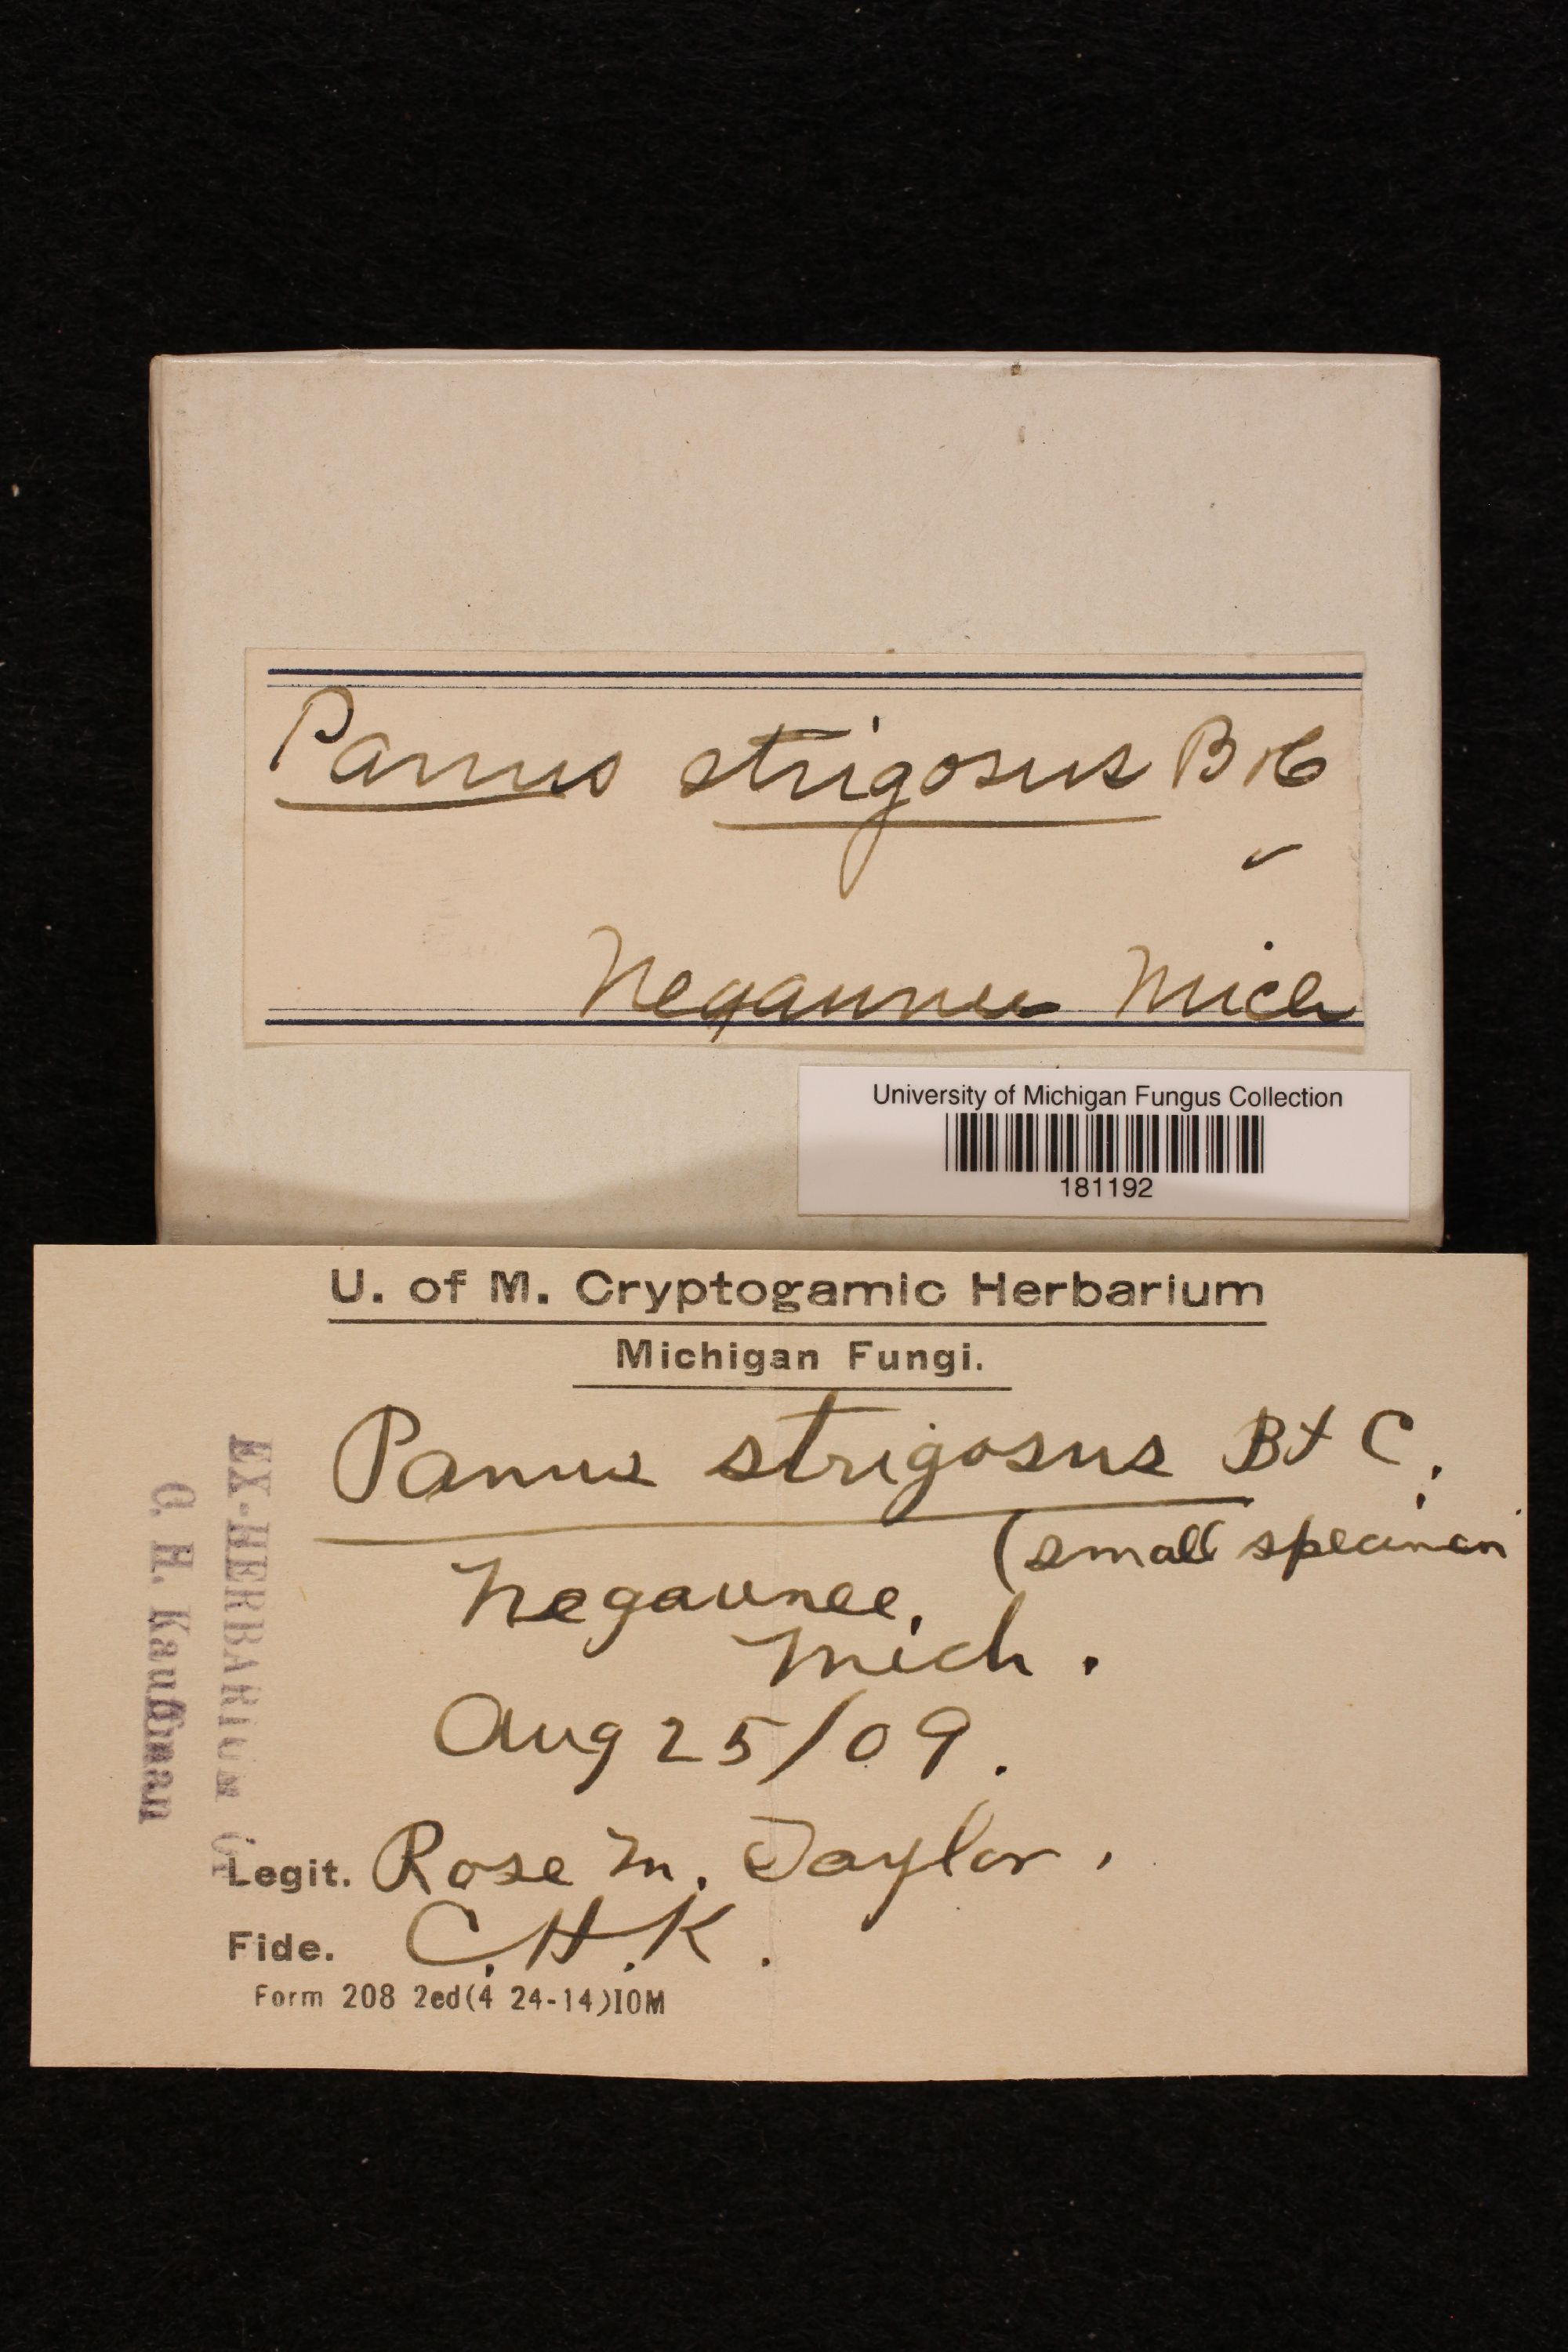 Panus strigosus B & C
Negaunee Mich
University of Michigan Fungus Collection
181192
U. of M. Cryptogamic Herbarium
Michigan Fungi.
Panus strigosus B & C.
(small specimen
Negaunee,
Mich.
Aug 25/09.
Legit. Rose M. Taylor.
Fide. C.H.K.
Form 208 2ed(4 24-14)10M
EX-HERBARIUM
C. H. Kauffman